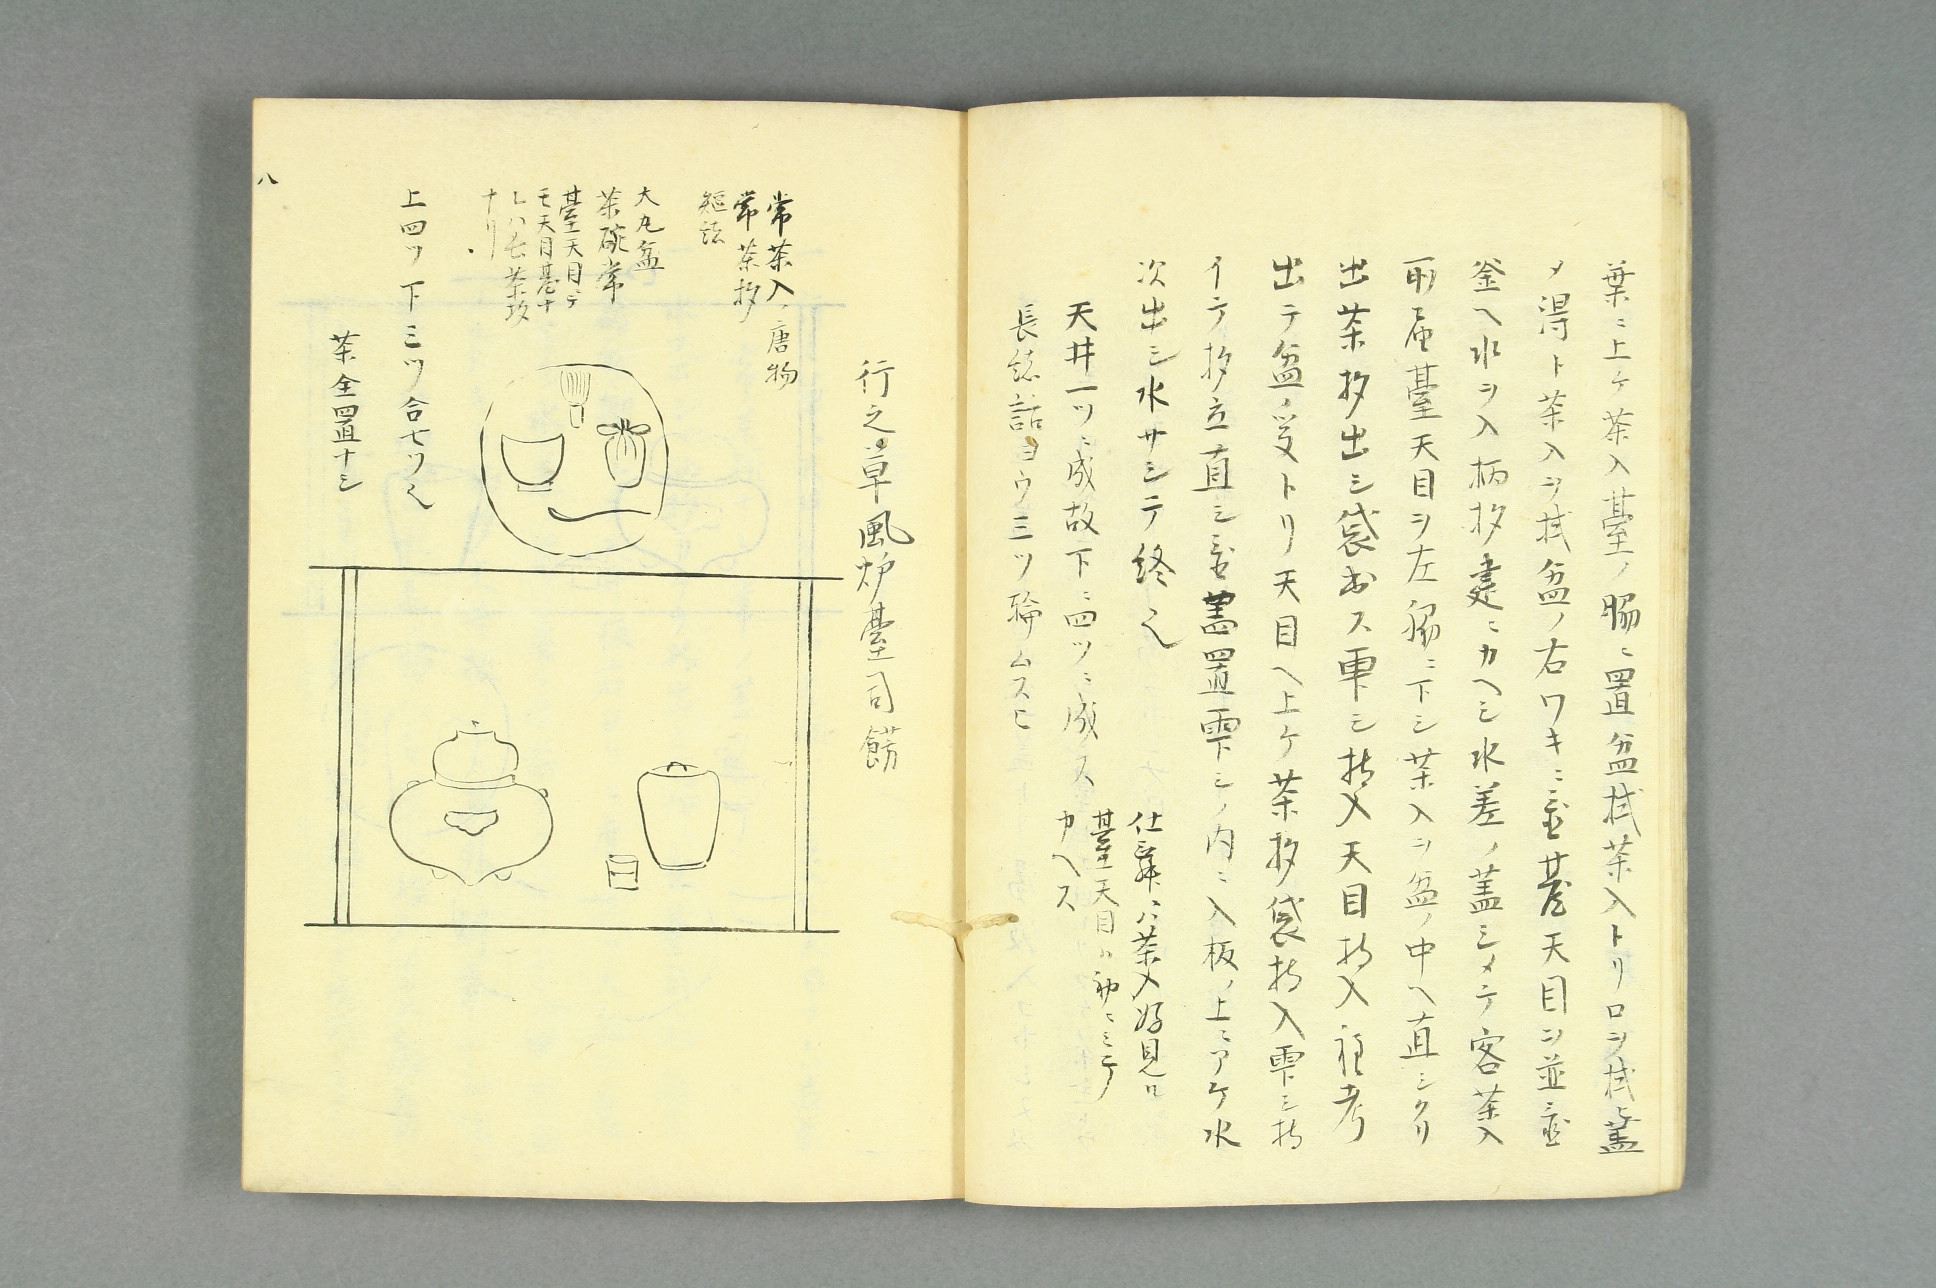 葉ニ上ケ茶入臺ノ脇ニ置盆拭茶入トリロシ拭蓋
メ得ト茶入ヲ拭盆ノ右ワキニ臺天目ヲ並
釜ヘ水ヲ入柄杓建ニカヘシ水差ノ蓋シメテ客茶入
臺天目ヲ左脇ニ下シ茶入ヲ盆ノ中ヘ直シ
出茶杓出シ袋出ス雫シ持入天目持入
出テ盆ノ受トリ天目ヘ上ケ茶杓袋持入雫シ持
イテ杓立直シ蓋置雫シノ内ニ入板ノ上ニアケ水
次出シ水サシニテ終
天井一ツニ成故下ニ四ツニ成ス
長緒結ヨウ三ツ輪ムスヒ
仕舞ニハ茶入好見
臺天目ハ初ニミテ
カヘス
行之草風炉臺司餝
常茶入、唐物
常茶杓
短緒
大丸盆
茶碗常
臺天目ニテ
モ天目臺ナ
レハ
ナリ
上四ツ下三ツ合七ツ
茶全置ナシ
八